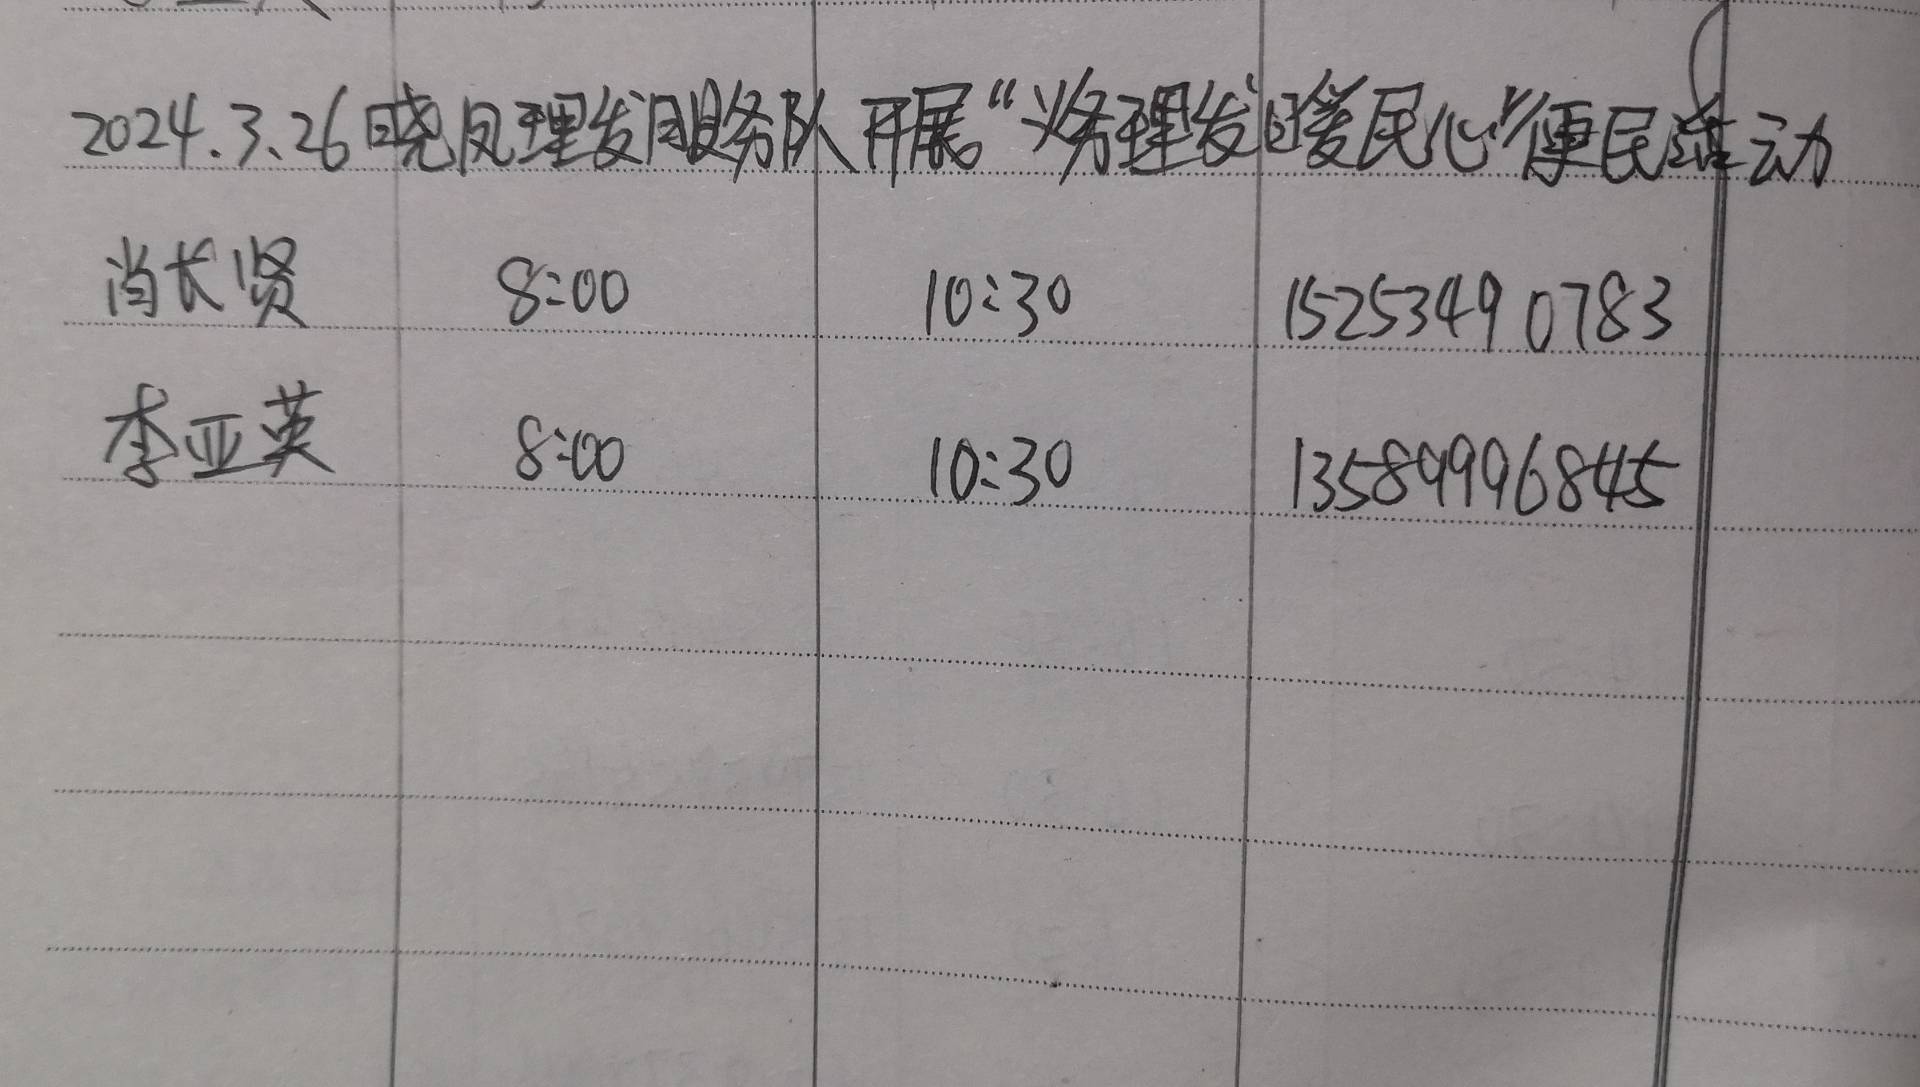 2024.3.26晓凤理发服务队开展“义务理发暖民心”便民活动
肖长贤 8:00 10:30 15253490783
李亚英 8:00 10:30 13589996845